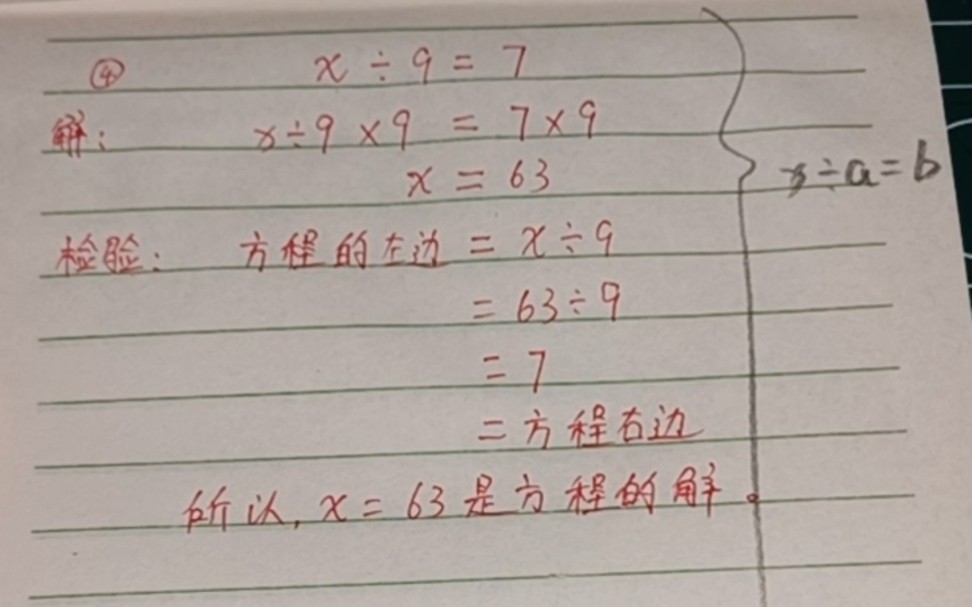 ④ x÷9=7
解: x÷9×9=7×9
x=63
x÷a=b
检验: 方程的左边=x÷9
=63÷9
=7
=方程右边
所以, x=63是方程的解。